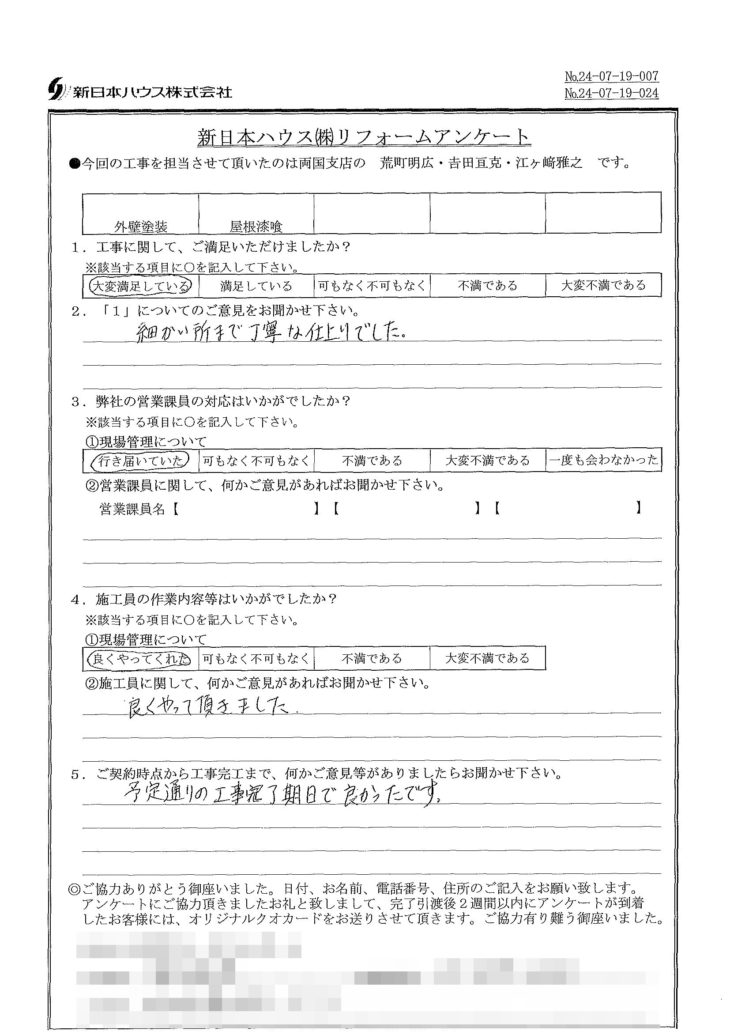 №24-07-19-007
新日本ハウス株式会社
№24-07-19-024
新日本ハウス㈱リフォームアンケート
●今回の工事を担当させて頂いたのは両国支店の 荒町明広・𠮷田亘克・江ヶ﨑雅之 です。
外壁塗装 屋根漆喰
1．工事に関して、ご満足いただけましたか？
※該当する項目に○を記入して下さい。
大変満足している 満足している 可もなく不可もなく 不満である 大変不満である
2．「1」についてのご意見をお聞かせ下さい。
細かい所まで丁寧な仕上りでした。
3．弊社の営業課員の対応はいかがでしたか？
※該当する項目に○を記入して下さい。
①現場管理について
行き届いていた 可もなく不可もなく 不満である 大変不満である 一度も会わなかった
②営業課員に関して、何かご意見があればお聞かせ下さい。
営業課員名【 】【 】【 】
4．施工員の作業内容等はいかがでしたか？
※該当する項目に○を記入して下さい。
①現場管理について
良くやってくれた 可もなく不可もなく 不満である 大変不満である
②施工員に関して、何かご意見があればお聞かせ下さい。
良くやって頂きました.
5．ご契約時点から工事完工まで、何かご意見等がありましたらお聞かせ下さい。
予定通りの工事完了期日で良かったです。
◎ご協力ありがとう御座いました。日付、お名前、電話番号、住所のご記入をお願い致します。
アンケートにご協力頂きましたお礼と致しまして、完了引渡後2週間以内にアンケートが到着
したお客様には、オリジナルクオカードをお送りさせて頂きます。ご協力有り難う御座いました。